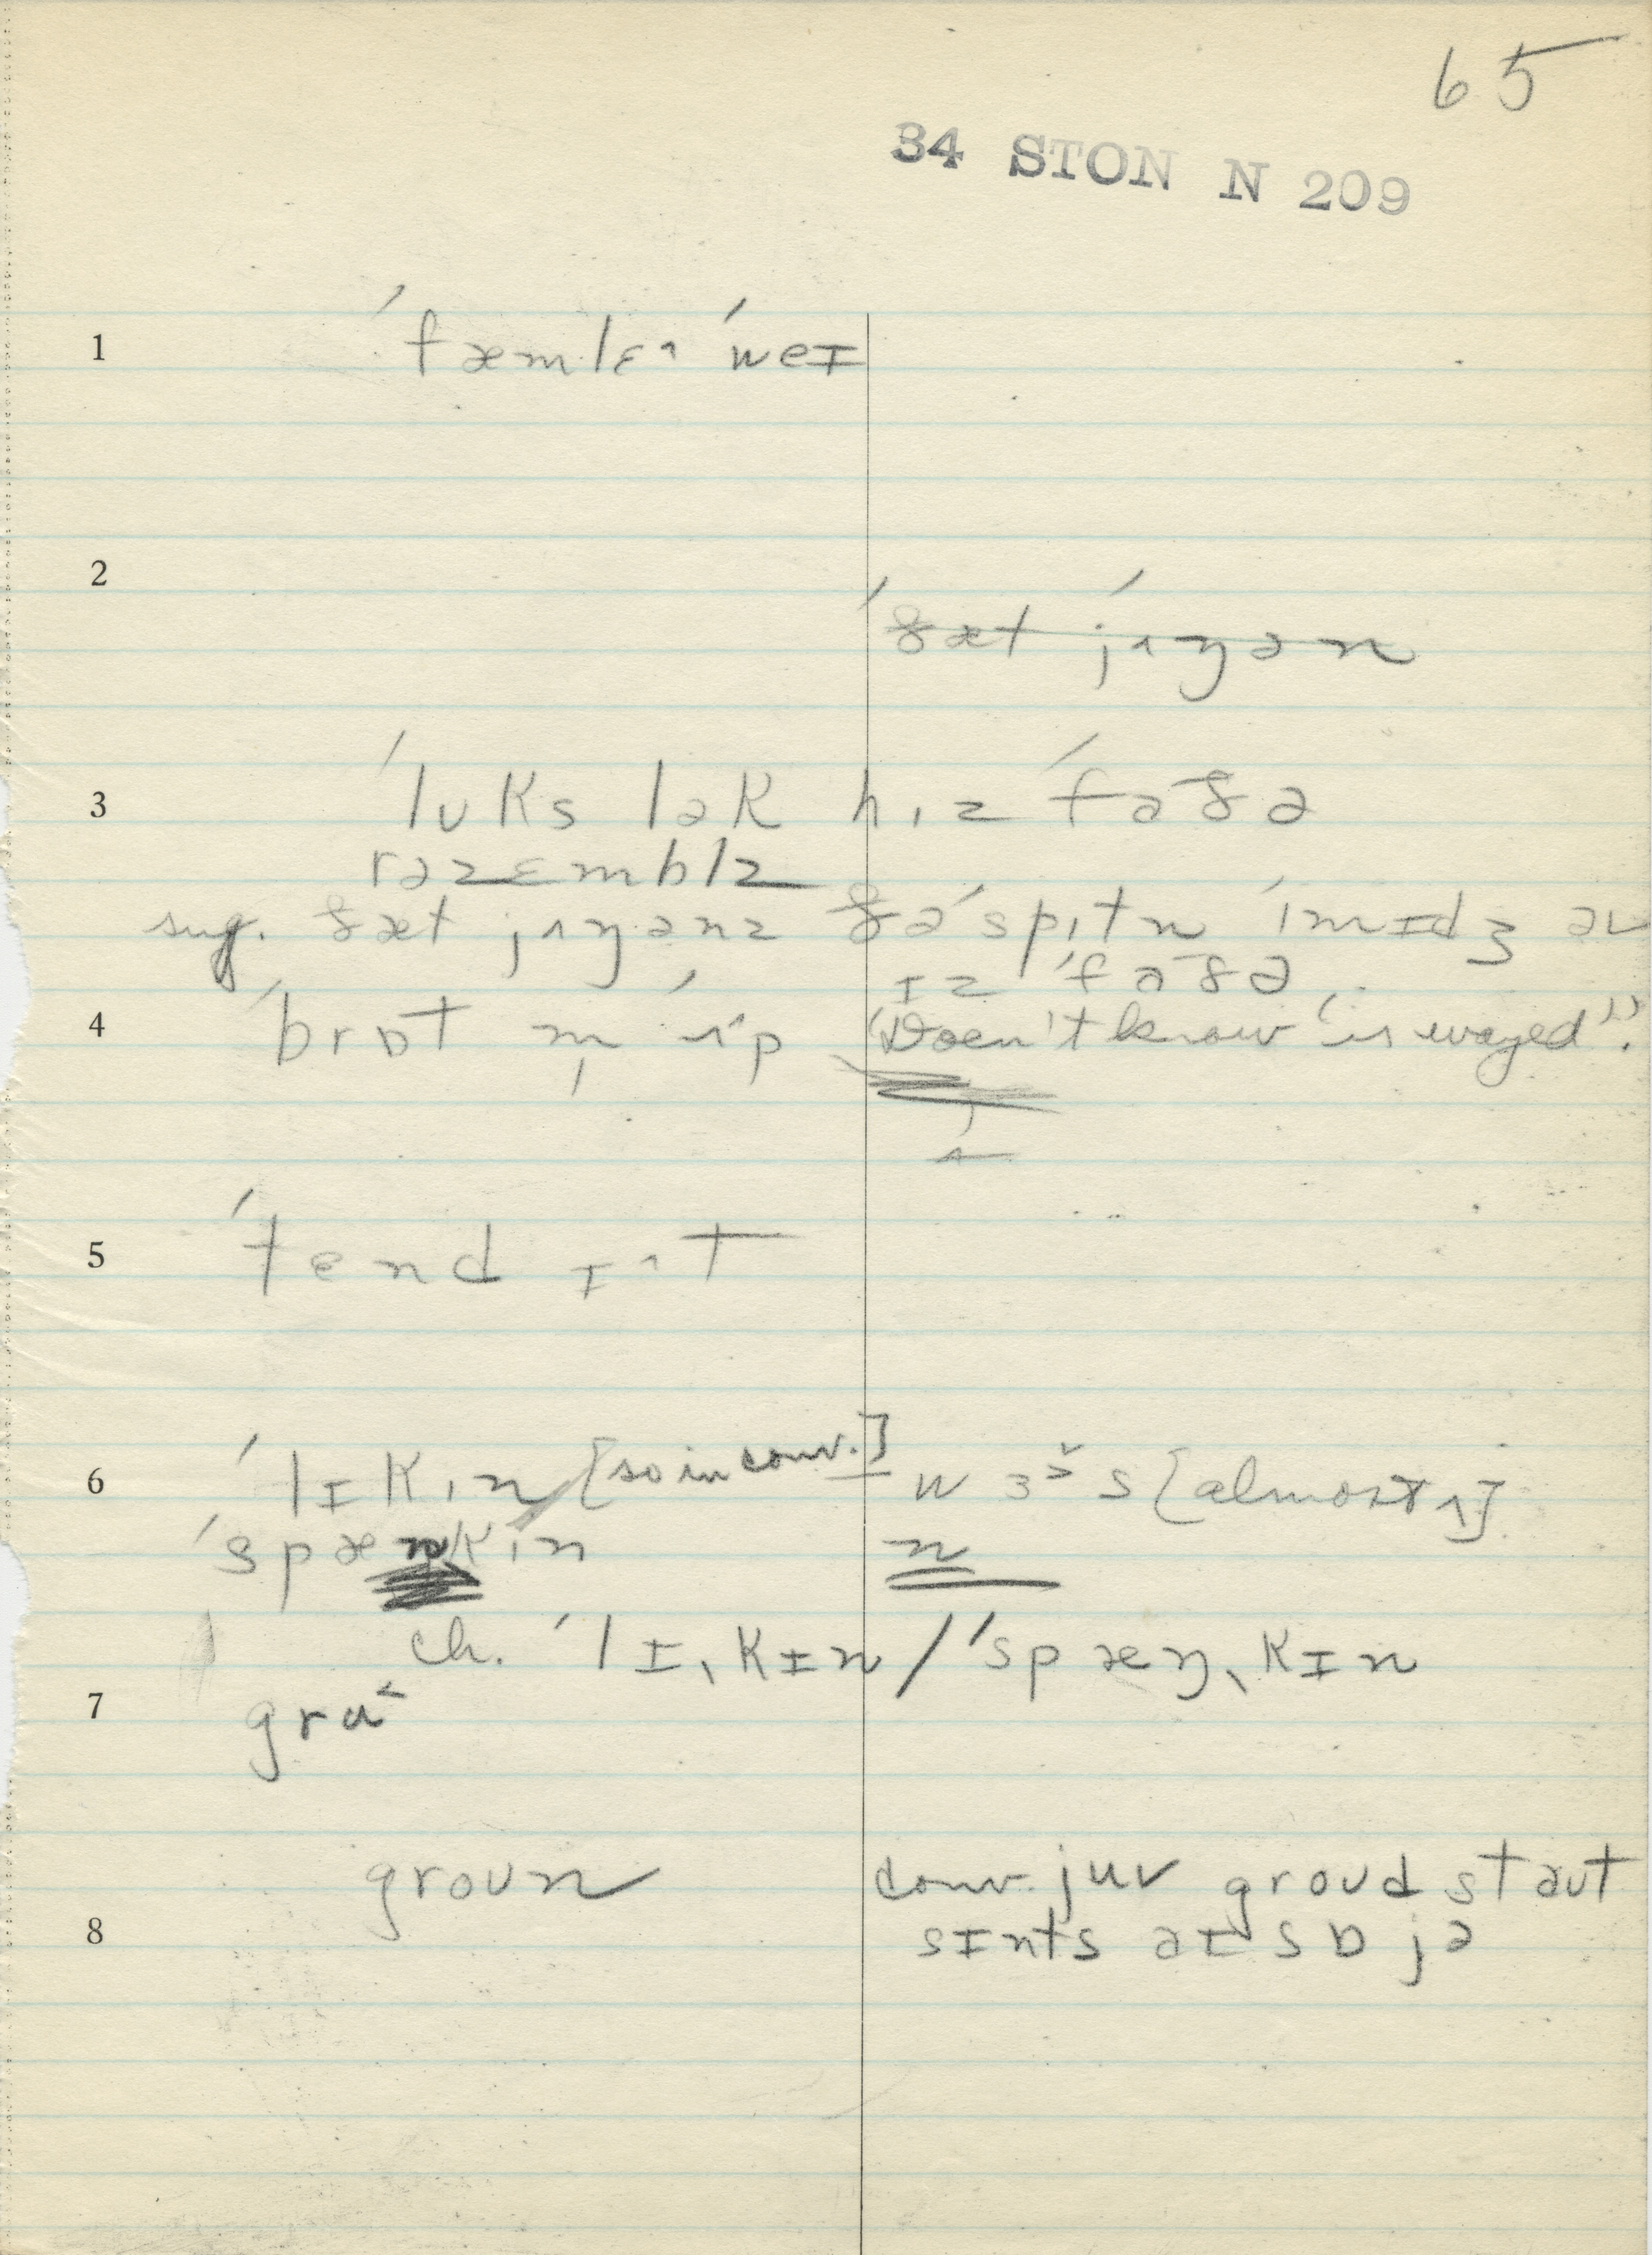 65
34 STON N 209
1 ˈfæmlɛ˄ ˈweɪ
2
ˈðæt ˈjʌŋən
3 ˈlʊks lək hɪz ˈfaðə
rəzɛmblz
sug. ðæt jʌŋənz ðə ˈspɪtn ˈɪmɪdʒ əv
ɪz ˈfaðə
4 ˈbrɒt m̩ ˈʌp (Doen't know "is wayed").
5 ˈtend ɪ˄t
6 ˈlɪkɪn [so in conv.] wɜ˃s [almost ʌ]
ˈspænkɪn n
ch. ˈlɪˌkɪn / ˈspæŋˌkɪn
7 gru˂
groun conv. juv groud staut
8 sɪnts aɪ sɒ jə